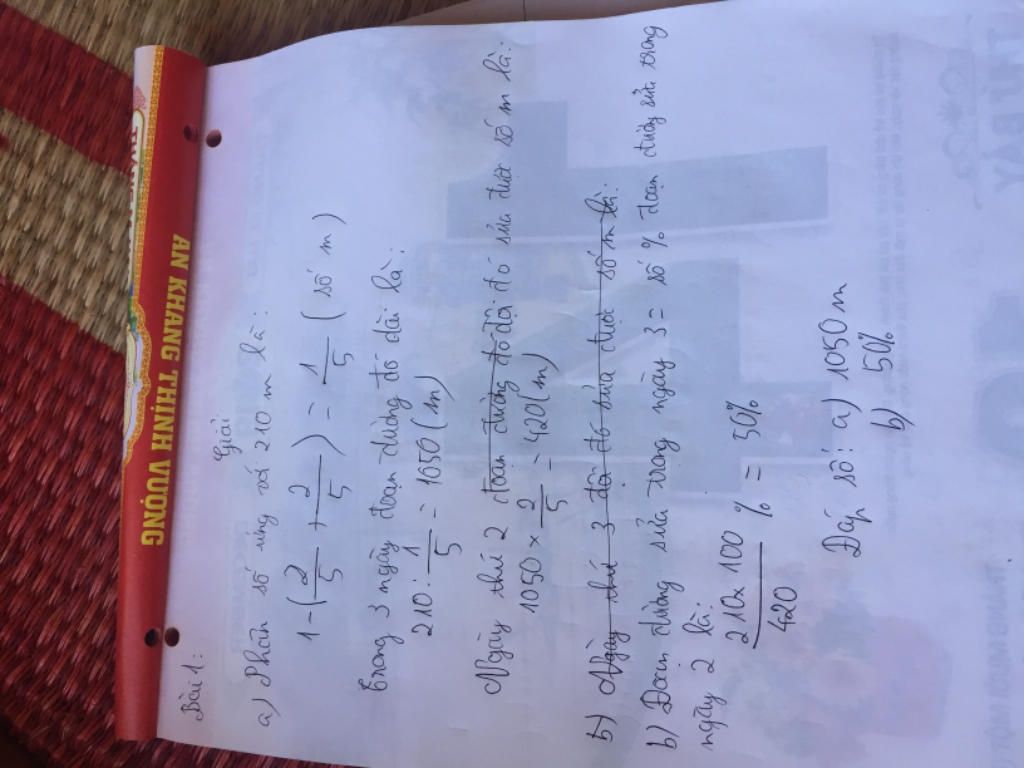 AN KHANG THỊNH VƯỢNG
Bài 1:
Giải
a) Phân số ứng với 210 m là:
1 - (2/5 + 2/5) = 1/5 (số m)
Trong 3 ngày đoạn đường đó dài là:
210 : 1/5 = 1050 (m)
Ngày thứ 2 đoạn đường đó đội đó sửa được số m là:
1050 × 2/5 = 420 (m)
b) Ngày thứ 3 đội đó sửa được số m là:
b) Đoạn đường sửa trong ngày 3 = số % đoạn đường sửa trong
ngày 2 là:
210 x 100 / 420 % = 50%
Đáp số: a) 1050 m
b) 50%